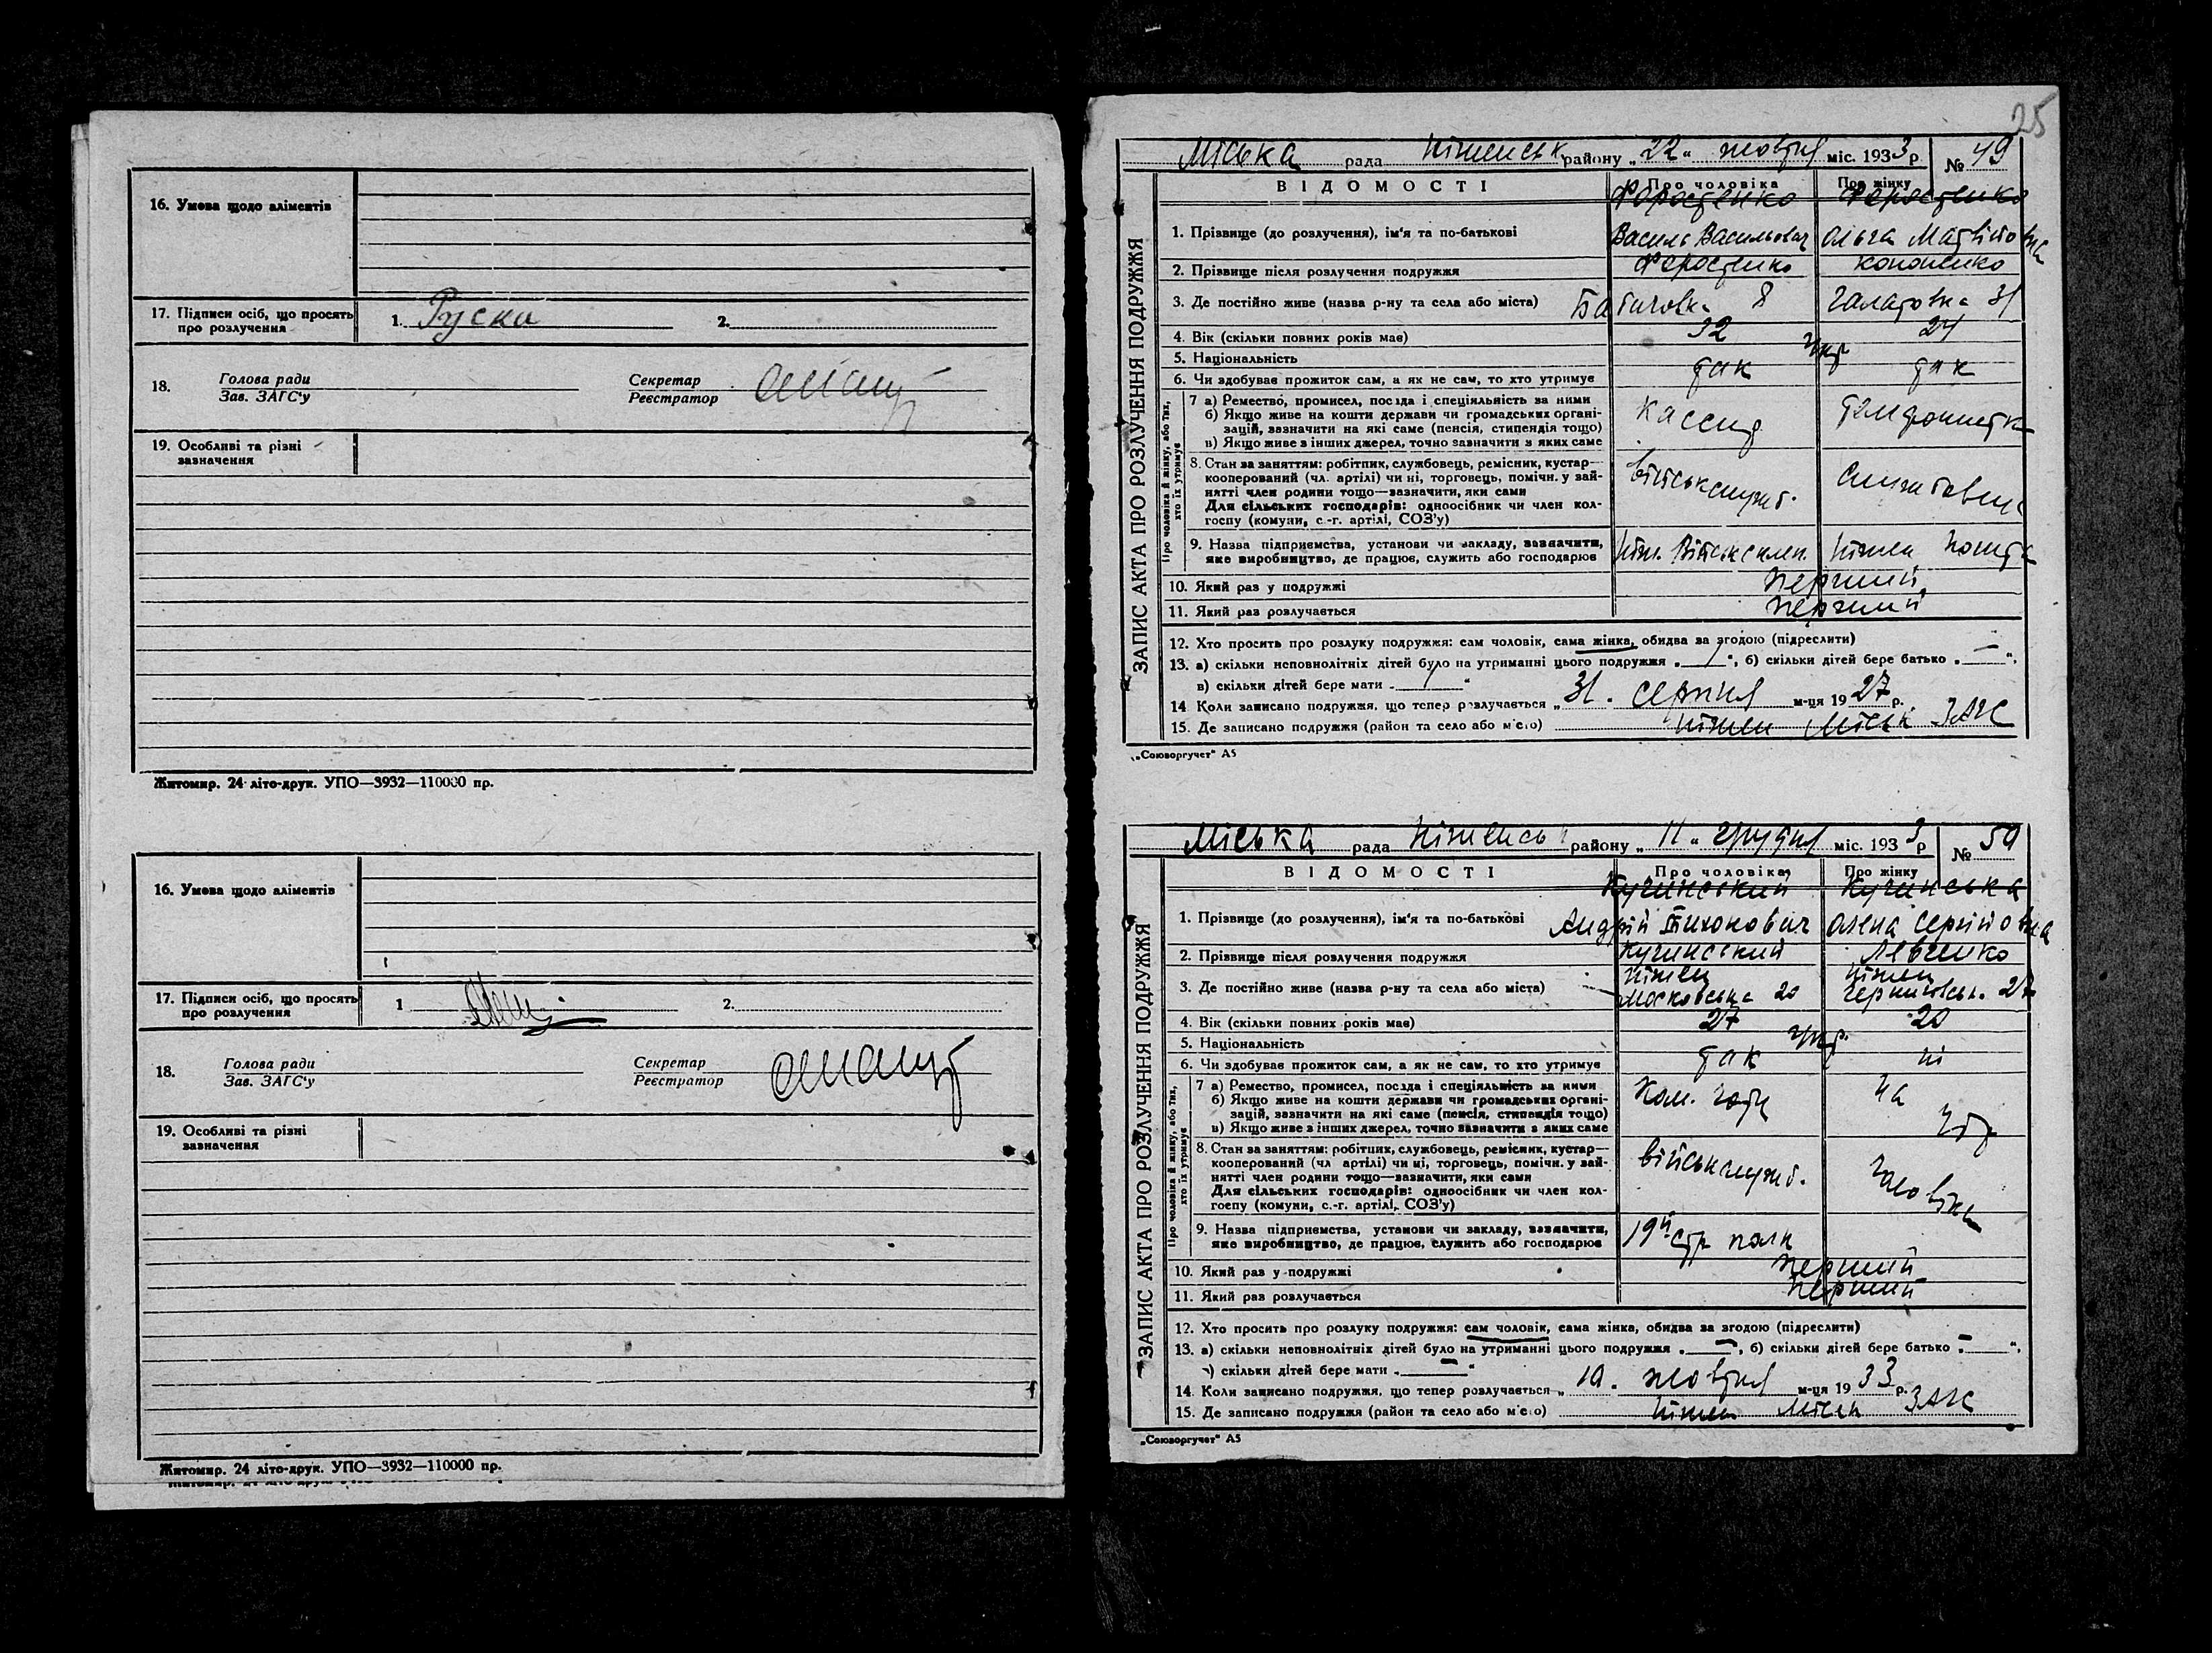 16. Умова щодо аліментів
17. Підписи осіб, що просять
про розлучення
1. Руска 2.
18. Голова ради
Зав. ЗАГС'у
Секретар
Реєстратор
19. Особливі та різні
зазначення
Житомир. 24 літо-друк. УПО—3932—110000 пр.
16. Умова щодо аліментів
17. Підписи осіб, що просять
про розлучення
1 2.
18. Голова ради
Зав. ЗАГС'у
Секретар
Реєстратор
19. Особливі та різні
зазначення
Житомир. 24 літо-друк. УПО—3932—110000 пр.
25
Міська рада Ніженськ району „22" жовтня міс. 1933 р. № 49
ЗАПИС АКТА ПРО РОЗЛУЧЕННЯ ПОДРУЖЖЯ
ВІДОМОСТІ Про чоловіка Про жінку
1. Прізвище (до розлучення), ім'я та по-батькові Василь Васильович Ольга Матвіївна
2. Прізвище після розлучення подружжя Кононенко
3. Де постійно живе (назва р-ну та села або міста) 8 31
4. Вік (скільки повних років має) 32 24
5. Національність укр
6. Чи здобуває прожиток сам, а як не сам, то хто утримує так так
Про чоловіка й жінку, або тих, хто їх утримує
7 а) Ремество, промисел, посада і спеціяльність за ними
б) Якщо живе на кошти держави чи громадських органі-
зацій, зазначити на які саме (пенсія, стипендія тощо)
в) Якщо живе з інших джерел, точно зазначити з яких саме
Кассир
8. Стан за заняттям: робітник, службовець, ремісник, кустар—
кооперований (чл. артілі) чи ні, торговець, помічн. у зай-
нятті член родини тощо—зазначити, яки сами
Для сільських господарів: одноосібник чи член кол-
госпу (комуни, с.-г. артілі, СОЗ'у)
військслужб.
9. Назва підприємства, установи чи закладу, зазначити,
яке виробництво, де працює, служить або господарює
Ніжен пошта
10. Який раз у подружжі перший
11. Який раз розлучається перший
12. Хто просить про розлуку подружжя: сам чоловік, сама жінка, обидва за згодою (підреслити)
13. а) скільки неповнолітніх дітей було на утриманні цього подружжя „ 1 ", б) скільки дітей бере батько „ — ",
в) скільки дітей бере мати „ 1 "
14 Коли записано подружжя, що тепер розлучається „ 31. серпня м-ця 1927 р.
15. Де записано подружжя (район та село або місто) Ніжен міськ ЗАГС
„Союзоргучет" А5
Міська рада Ніженськ району „ 11 " грудня міс. 1933 р № 50
ЗАПИС АКТА ПРО РОЗЛУЧЕННЯ ПОДРУЖЖЯ
ВІДОМОСТІ Про чоловіка Про жінку
Кучинський Кучинська
1. Прізвище (до розлучення), ім'я та по-батькові Андрій Тихонович Олена Сергіївна
2. Прізвище після розлучення подружжя Кучинський Левченко
Ніжен Ніжен
3. Де постійно живе (назва р-ну та села або міста) Московська 20 Чернигівськ. 27
4. Вік (скільки повних років має) 27 20
5. Національність укр.
6. Чи здобуває прожиток сам, а як не сам, то хто утримує так ні
Про чоловіка й жінку, або тих, хто їх утримує
7 а) Ремество, промисел, посада і спеціяльність за ними
б) Якщо живе на кошти держави чи громадських органі-
зацій, зазначити на які саме (пенсія, стипендія тощо)
в) Якщо живе з інших джерел, точно зазначити з яких саме
на утр
8. Стан за заняттям: робітник, службовець, ремісник, кустар—
кооперований (чл артілі) чи ні, торговець, помічн. у зай-
нятті член родини тощо—зазначити, яки сами
Для сільських господарів: одноосібник чи член кол-
госпу (комуни, с.-г. артілі, СОЗ'у)
військслужб. чоловіка
9. Назва підприємства, установи чи закладу, зазначити,
яке виробництво, де працює, служить або господарює
19й стр полк
10. Який раз у подружжі перший
11. Який раз розлучається перший
12. Хто просить про розлуку подружжя: сам чоловік, сама жінка, обидва за згодою (підреслити)
13. а) скільки неповнолітніх дітей було на утриманні цього подружжя „ — ", б) скільки дітей бере батько „ — ",
в) скільки дітей бере мати „ — "
14. Коли записано подружжя, що тепер розлучається „ 10. жовтня м-ця 1933 р.
15. Де записано подружжя (район та село або місто) Ніжен міськ ЗАГС
„Союзоргучет" А5